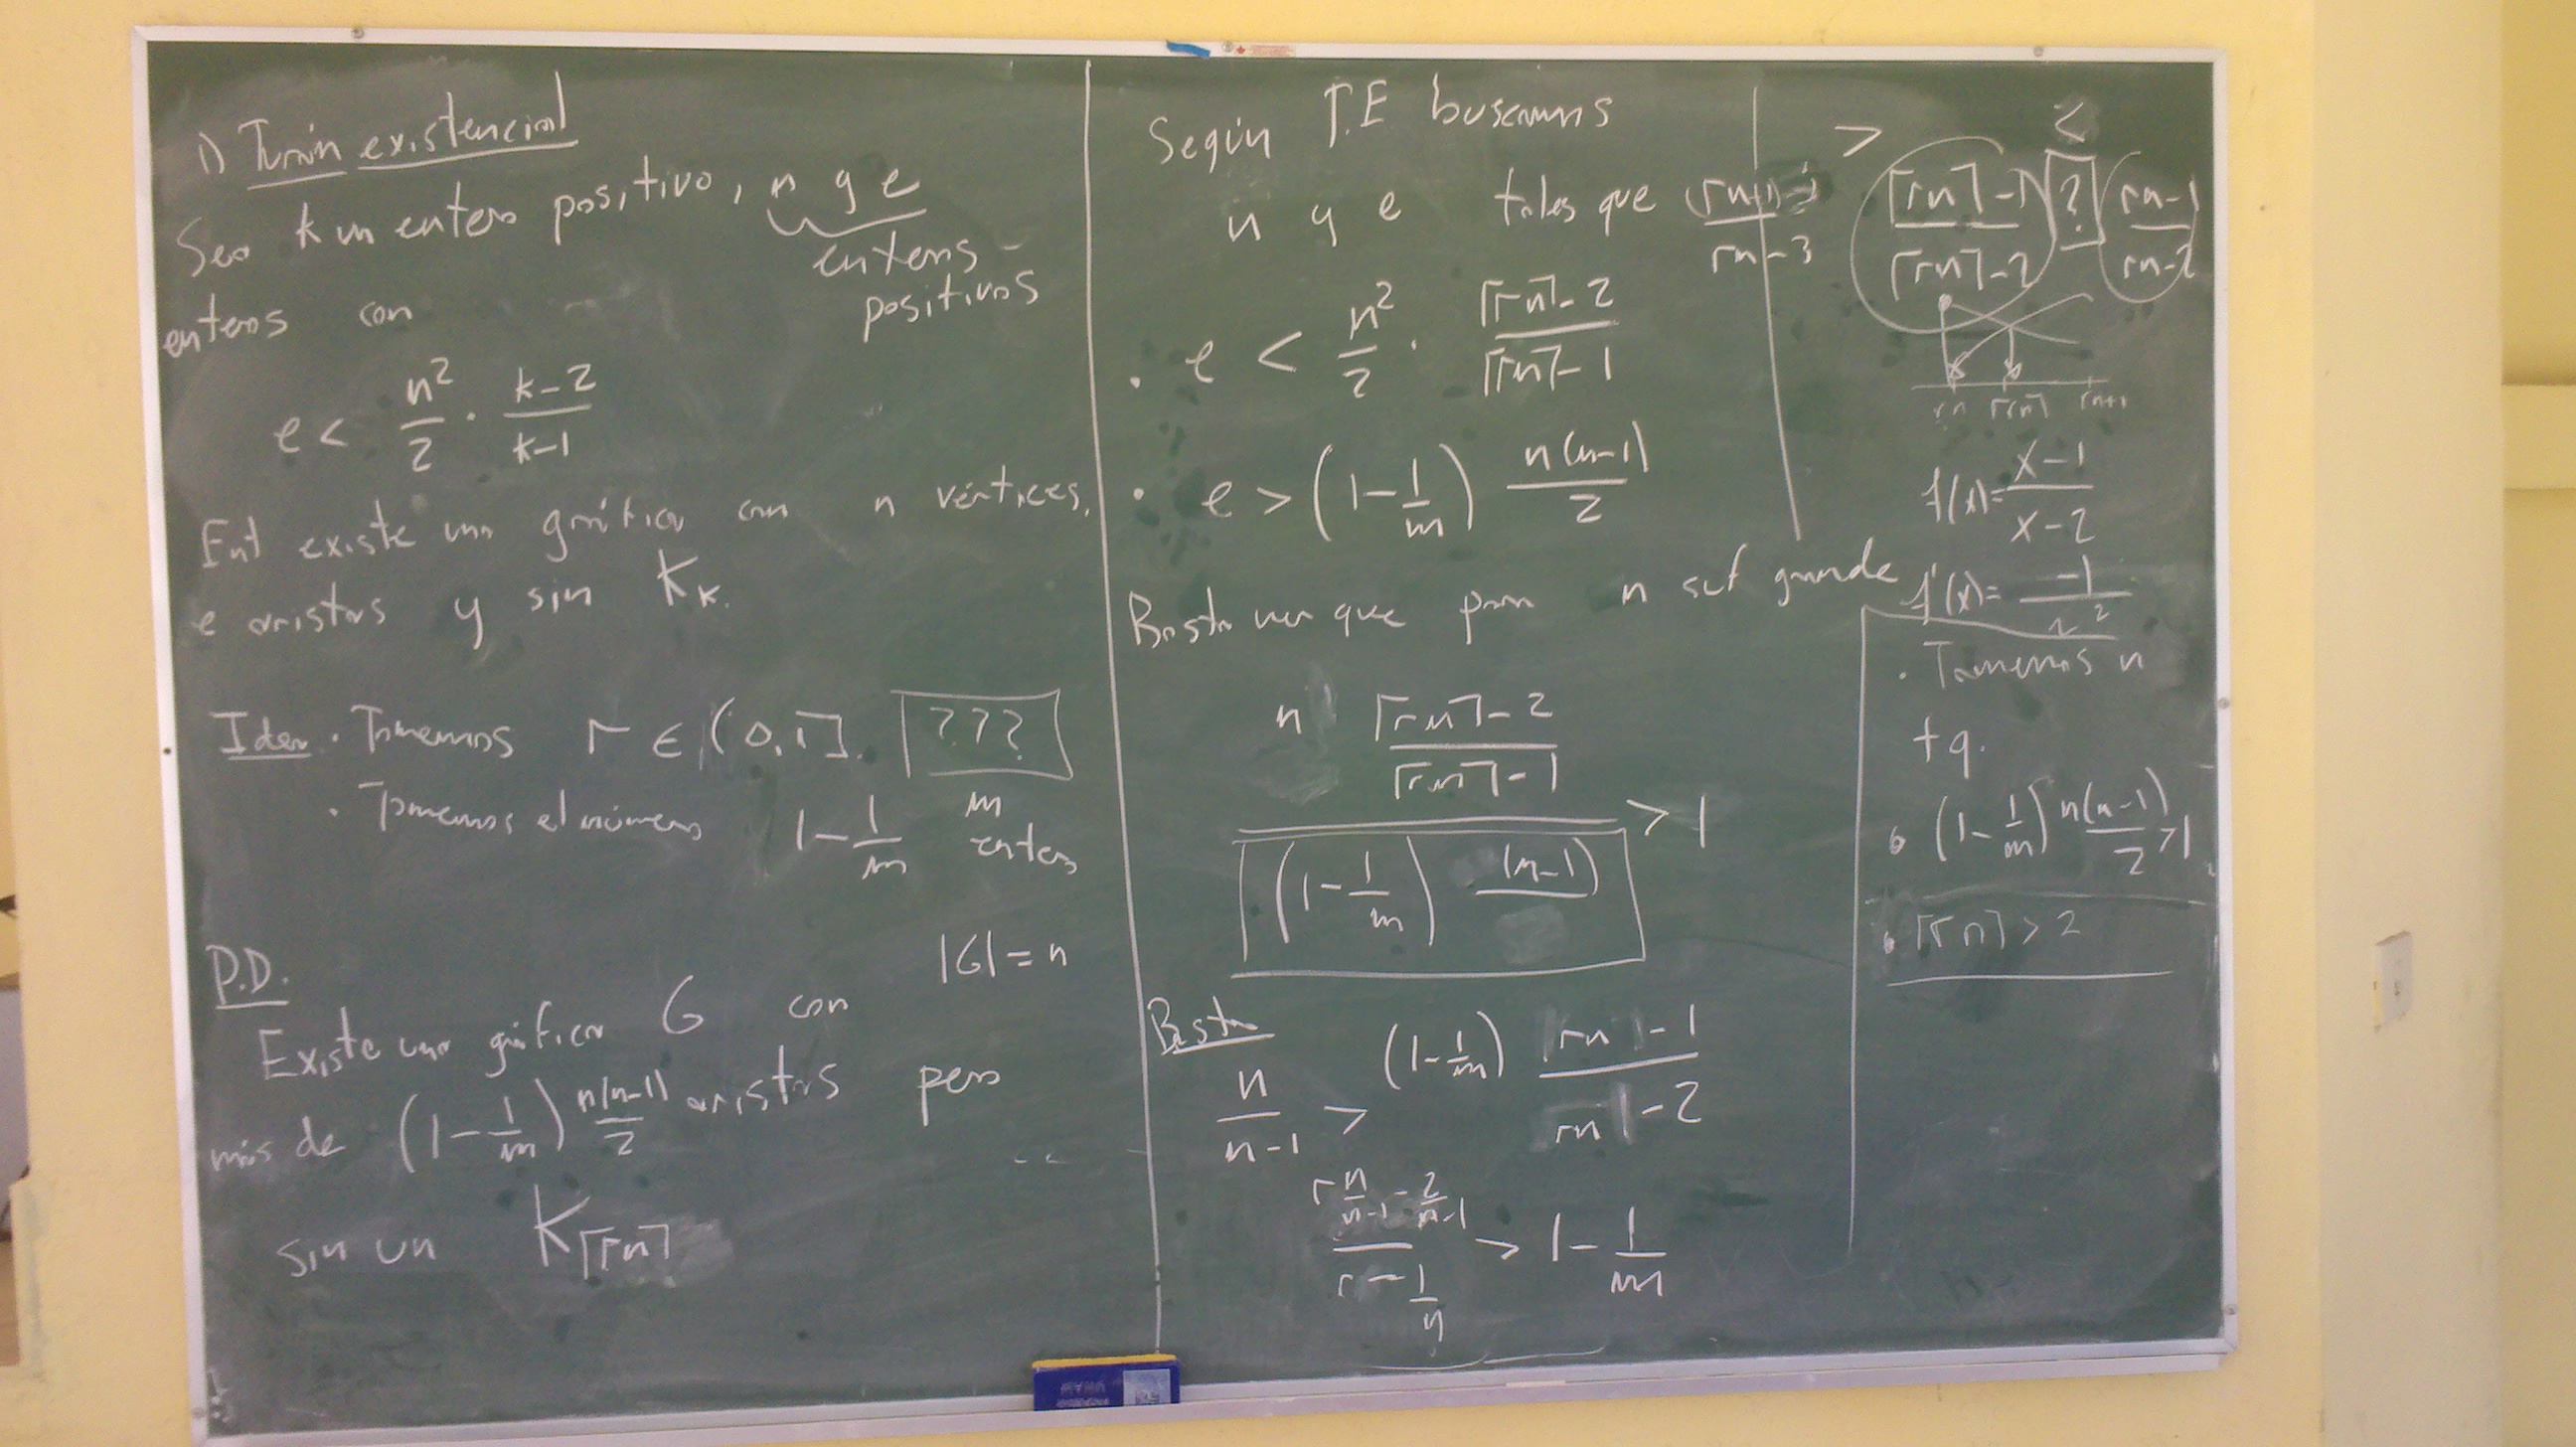 1) Turán existencial
Sea k un entero positivo, n y e
enteros
positivos
enteros con
e < n²/2 · k-2/k-1
Ent existe una gráfica con n vértices,
e aristas y sin K_k.
Idea · Tomemos r ∈ (0,1]. ???
· Tomemos el número 1 - 1/m m entero
P.D.
Existe una gráfica G con |G| = n
más de (1 - 1/m) n(n-1)/2 aristas pero
sin un K_⌈rn⌉
Según T.E buscamos
n y e tales que
rn-3
· e < n²/2 · ⌈rn⌉-2/⌈rn⌉-1
· e > (1 - 1/m) n(n-1)/2
Basta ver que para n suf grande
n ⌈rn⌉-2/⌈rn⌉-1
> 1
(1 - 1/m) (n-1)
Basta
n/n-1 > (1 - 1/m) rn-1/rn-2
r n/n-1 - 2/n-1 / r - 1/n > 1 - 1/m
> <
⌈rn⌉-1/⌈rn⌉-2 ? rn-1/rn-2
rn ⌈rn⌉ rn+1
f(x) = x-1/x-2
f'(x) = -1/ ²
· Tomemos n
tq.
· (1 - 1/m) n(n-1)/2 > 1
· ⌈rn⌉ > 2